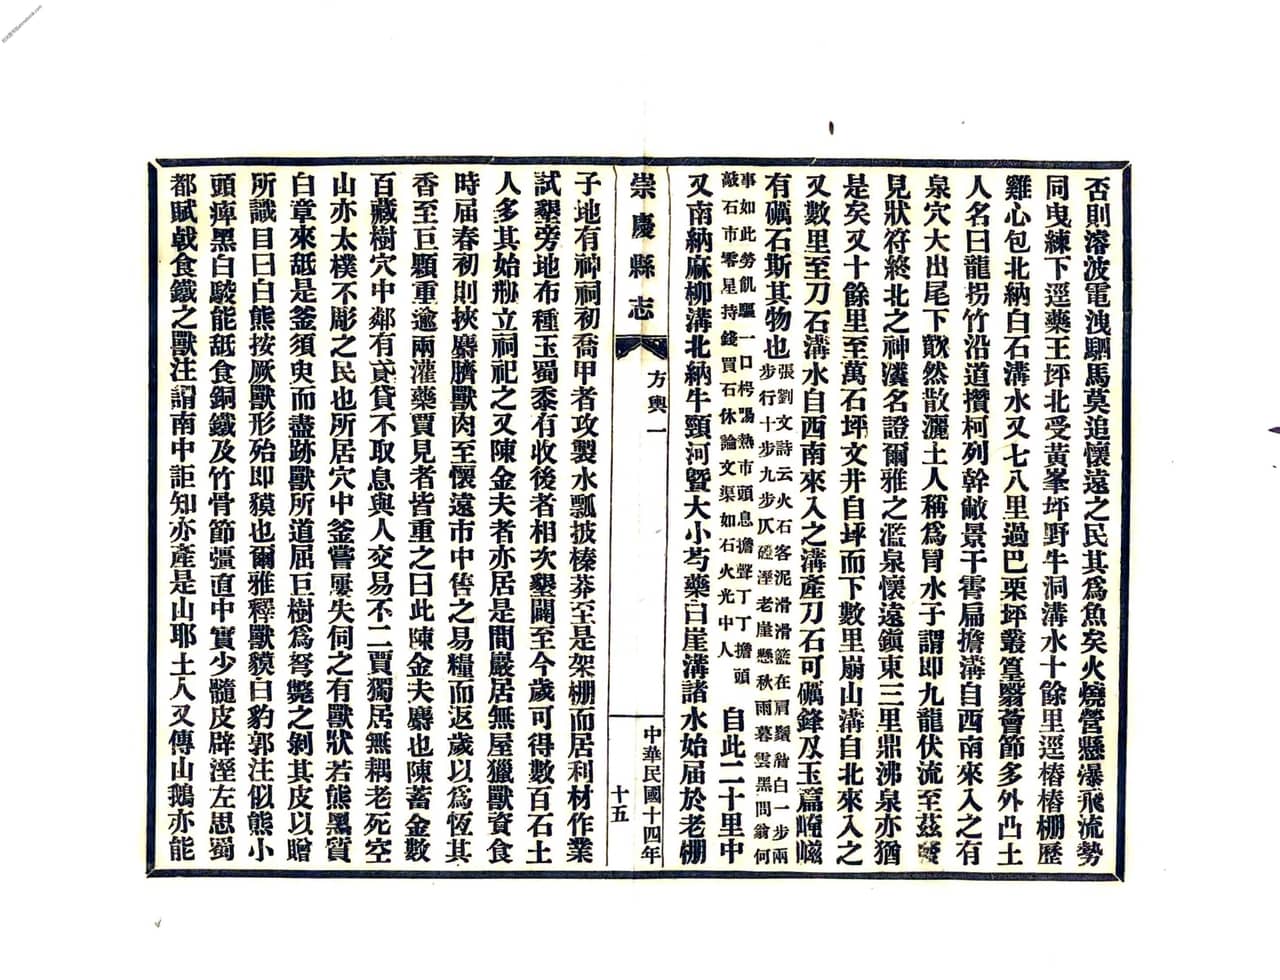 否則溶波電洩駟馬莫追懷遠之民其爲魚矣火燒營懸瀑飛流勢
同曳練下逕藥王坪北受黃峯坪野牛洞溝水十餘里逕椿椿棚歷
雞心包北納白石溝水又七八里過巴栗坪叢篁翳薈節多外凸土
人名曰龍拐竹沿道攢柯列幹敝景干霄扁擔溝自西南來入之有
泉穴大出尾下歕然散灑土人稱爲冐水子謂即九龍伏流至茲
見狀符終北之神瀵名證爾雅之濫泉懷遠鎭東三里鼎沸泉亦猶
是矣又十餘里至萬石坪文井自坪而下數里崩山溝自北來入之
又數里至刀石溝水自西南來入之溝產刀石可礪鋒及玉篇崦嵫
有礪石斯其物也張劉文詩云火石客泥滑滑籃在肩鬚白一步兩
步行十步九步仄磴溼老崖懸秋雨暮雲黑問翁何
事如此勞飢驅一口枵腸熱市頭息擔聲丁丁擔頭
敲石市零星持錢買石休論文渠如石火光中人
自此二十里中
又南納麻柳溝北納牛頸河暨大小芍藥白崖溝諸水始届於老棚
崇慶縣志
方輿一
中華民國十四年
十五
子地有神祠初喬甲者攻製水瓢披榛莽至是架棚而居利材作業
試墾旁地布種玉蜀黍有收後者相次墾闢至今歲可得數百石土
人多其始刱立祠祀之又陳金夫者亦居是間巖居無屋獵獸資食
時届春初則挾麝臍獸肉至懷遠市中售之易糧而返歲以爲恆其
香至巨顆重逾兩灌藥賈見者皆重之曰此陳金夫麝也陳蓄金數
百藏樹穴中鄰有貣貸不取息與人交易不二賈獨居無耦老死空
山亦太樸不彫之民也所居穴中釜嘗屢失伺之有獸狀若熊黑質
白章來舐是釜須臾而盡跡獸所道屈巨樹爲弩斃之剝其皮以贈
所識目曰白熊按厥獸形殆即貘也爾雅釋獸貘白豹郭注似熊小
頭痺黑白駮能舐食銅鐵及竹骨節彊直中實少髓皮辟溼左思蜀
都賦戟食鐵之獸注謂南中詎知亦產是山耶土人又傳山鵝亦能